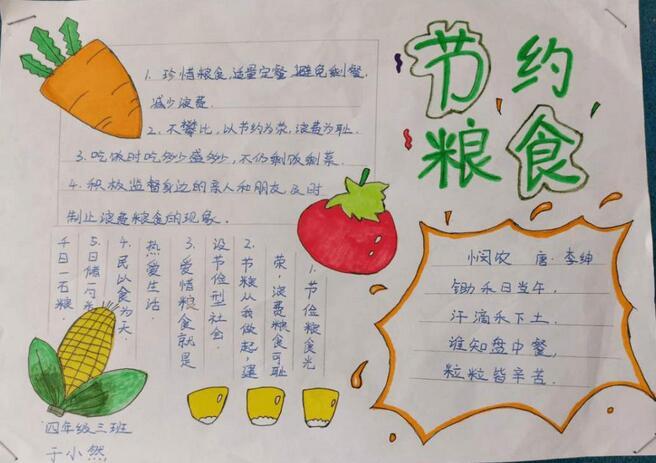 节约
粮食
1. 珍惜粮食,适量定餐,避免剩餐,
减少浪费.
2. 不攀比,以节约为荣,浪费为耻.
3. 吃饭时吃多少盛多少,不仍剩饭剩菜.
4. 积极监督身边的亲人和朋友及时
制止浪费粮食的现象.
1. 节俭粮食光
荣,浪费粮食可耻
2. 节粮从我做起,建
设节俭型社会.
3. 爱惜粮食就是
热爱生活.
4. 民以食为天.
5. 日储
千日一石粮.
悯农 唐·李绅
锄禾日当午,
汗滴禾下土.
谁知盘中餐,
粒粒皆辛苦.
四年级三班
于小然